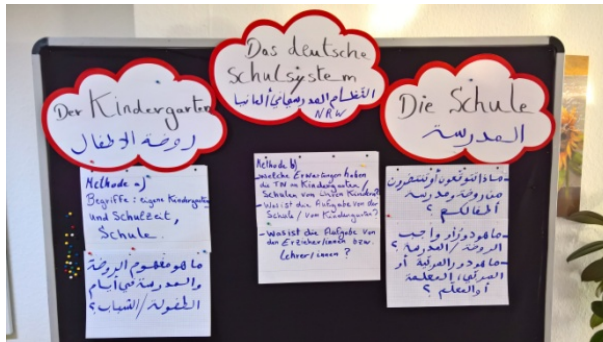 Das deutsche
Schulsystem
النظام المدرسي في ألمانيا
NRW
Der Kindergarten
روضة الاطفال
Die Schule
المدرسة
Methode a)
Begriffe: eigene Kindergarten
und Schulzeit,
Schule.
ما هو مفهوم الروضة
والمدرسة في أيام
الطفولة/الشباب؟
Methode b)
- Welche Erwartungen haben
die TN an Kindergarten/
Schulen von ihren Kindern?
- Was ist die Aufgabe von der
Schule / vom Kindergarten?
- Was ist die Aufgabe von
den Erzieher/innen bzw.
Lehrer/innen?
- ماذا تتوقعون أو تنتظرون
من روضة ومدرسة
أطفالكم؟
- ما هو دور أو واجب
الروضة/المدرسة؟
- ما هو دور المربية أو
المربي، المعلمة
أو المعلم؟